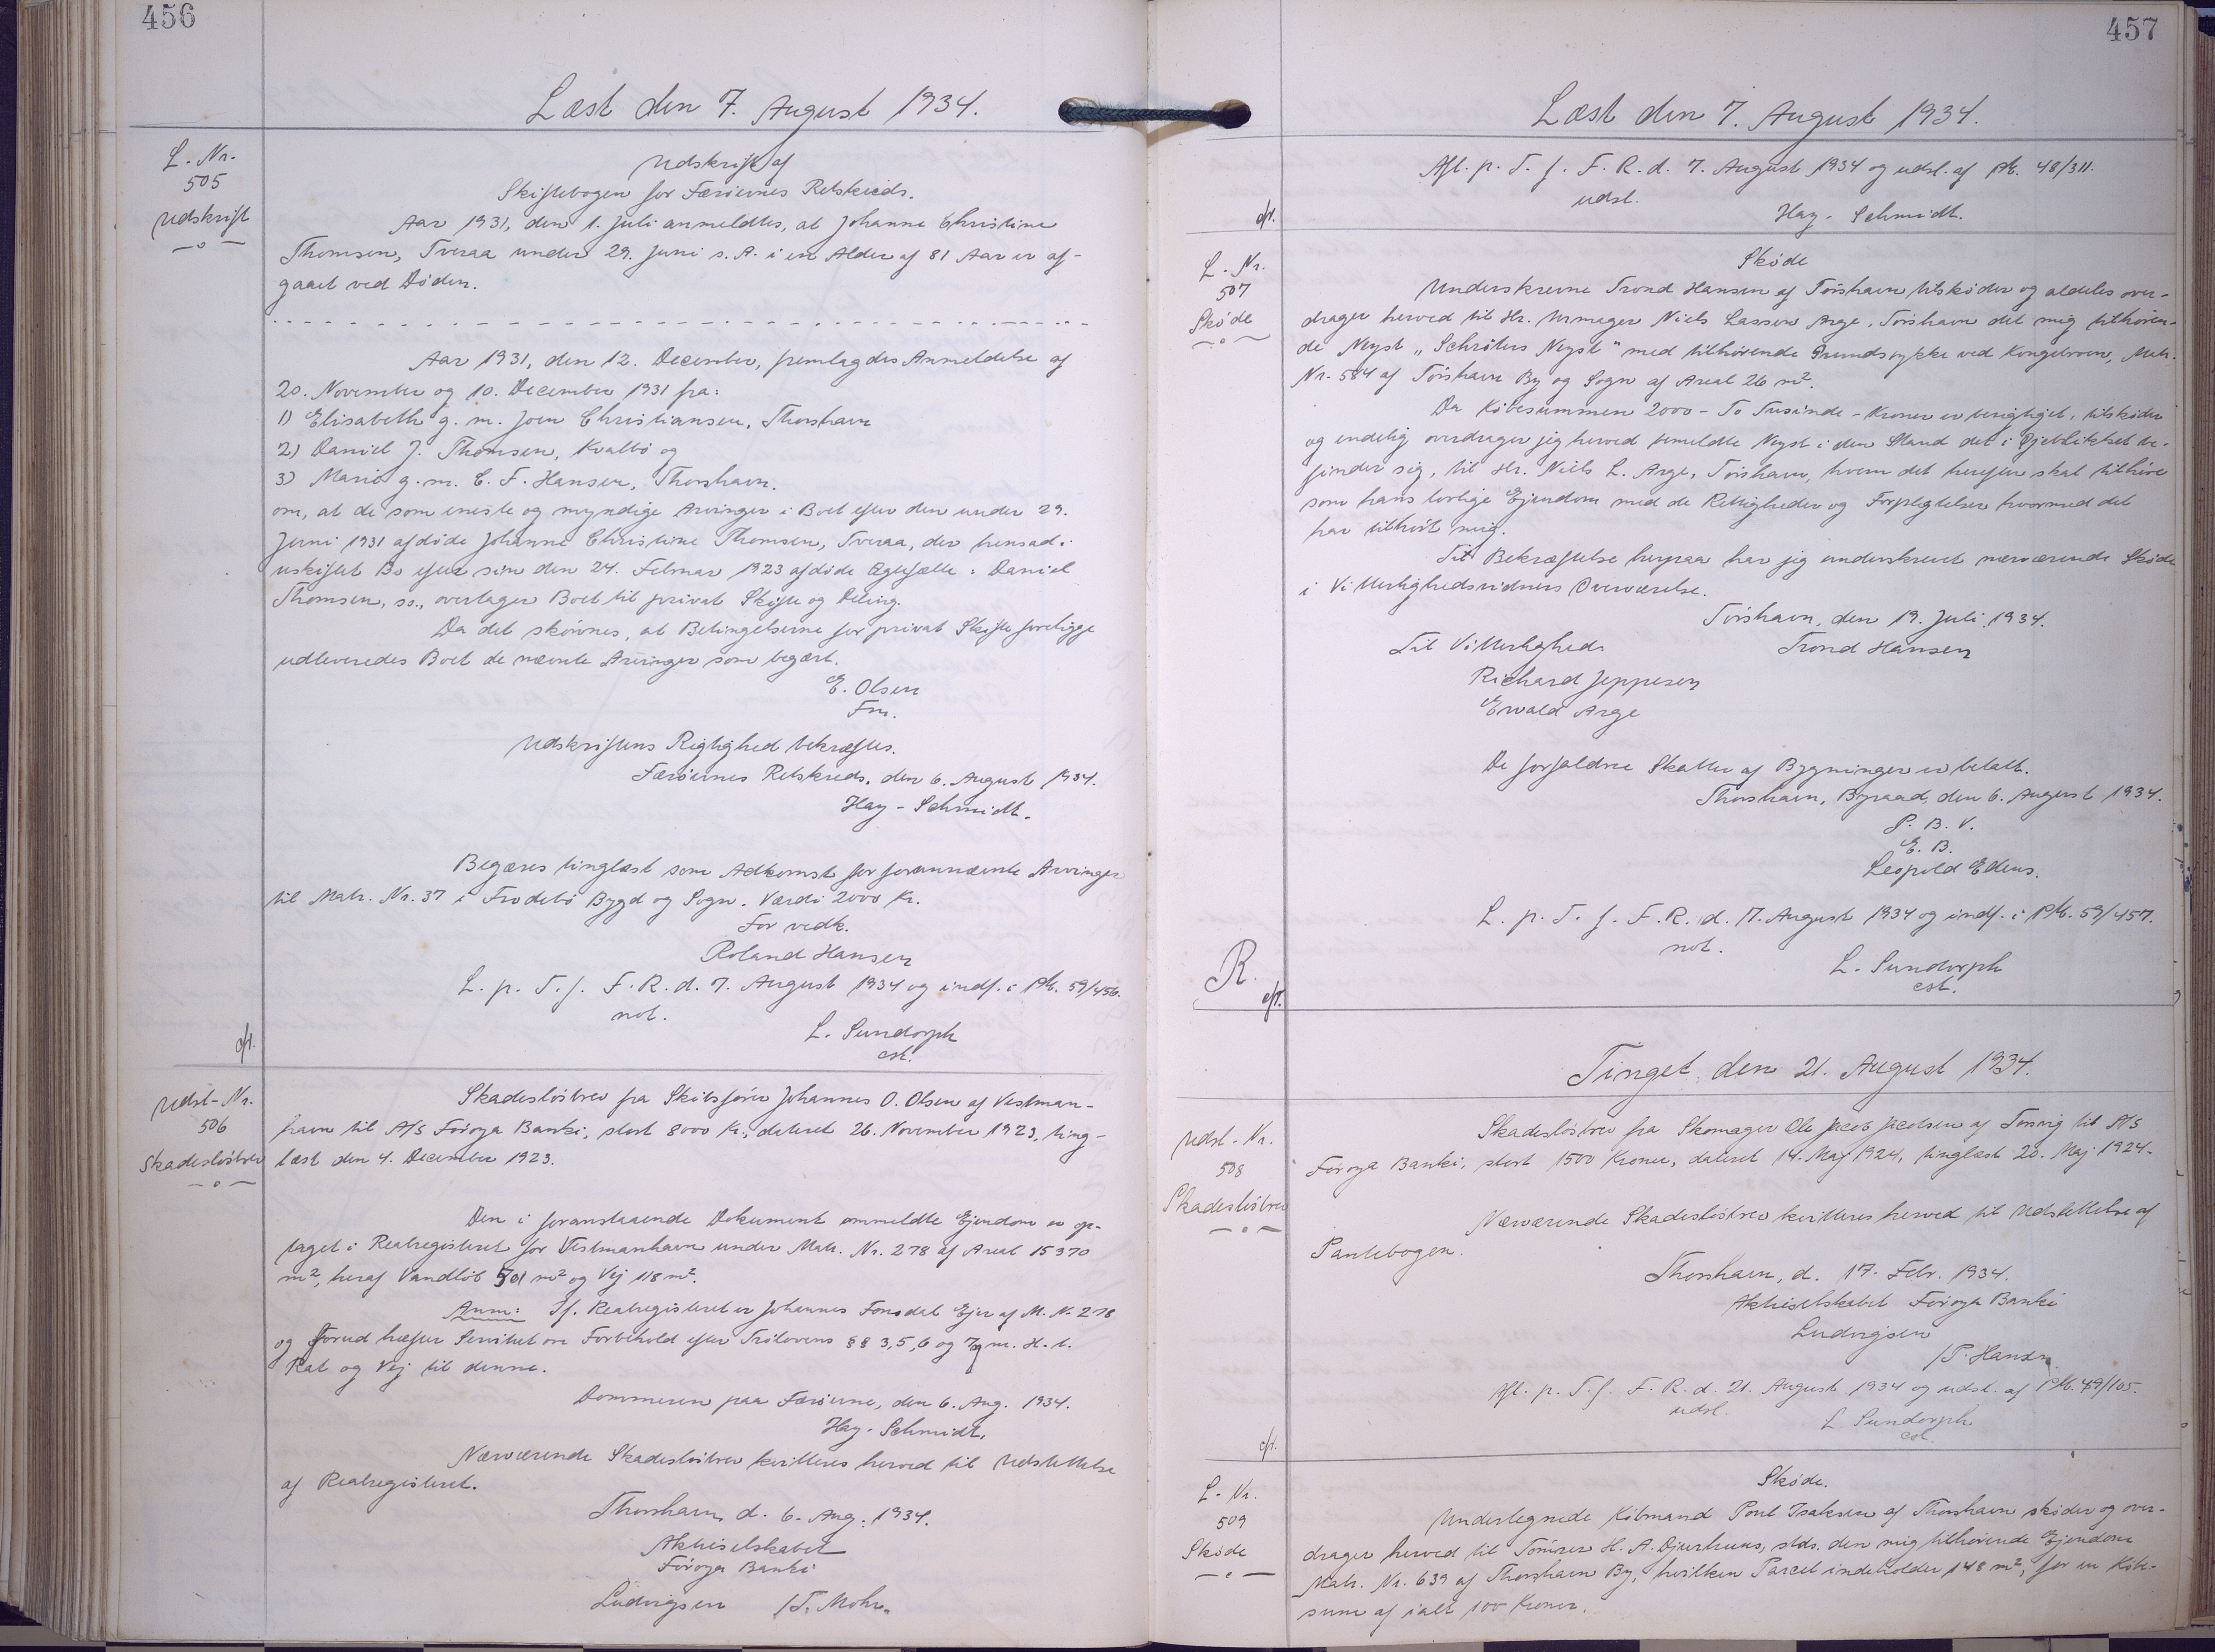 456
Læst den 7. August 1934.
L. Nr.
505
Udskrift
Udskrift af
Skiftebogen for Færöernes Retskreds.
Aar 1931, den 1. Juli anmeldtes, at Johanne Christine
Thomsen, Tveraa under 29. Juni s. A. i en Alder af 81 Aar er af-
gaaet ved Döden.
Aar 1931, den 12. December, fremlagdes Anmeldelse af
20. November og 10. December 1931 fra:
1) Elisabeth g. m. Joen Christiansen, Thorshavn
2) Daniel J. Thomsen, Kvalbö og
3) Marie g. m. C. F. Hansen, Thorshavn.
om, at de som eneste og myndige Arvinger i Boet efter den under 29.
Juni 1931 afdöde Johanne Christine Thomsen, Tveraa, der hensad i
uskiftet Bo efter sin den 24. Februar 1923 afdöde Ægtefælle: Daniel
Thomsen, ss., overtager Boet til privat Skifte og Deling.
Da det skönnes, at Betingelserne for privat Skifte foreligge
udleveredes Boet de nævnte Arvinger som begært.
E. Olsen
Fm.
Udskriftens Rigtighed bekræftes.
Færöernes Retskreds, den 6. August 1934.
Hay-Schmidt.
Begæres tinglæst som Adkomst for forannævnte Arvinger
til Matr. Nr. 37 i Frodebö Bygd og Sogn. Værdi 2000 Kr.
For vedk.
Roland Hansen
L. p. T. f. F. R. d. 7. August 1934 og indf. i Pb. 59/456.
not.
L. Sundorph
cst.
Udsl-Nr.
506
Skadeslösbrev
Skadeslösbrev fra Skibsförer Johannes O. Olsen af Vestman-
havn til A/S Föroya Banki, stort 8000 Kr., dateret 26. November 1923, ting-
læst den 4. December 1923.
Den i foranstaaende Dokument ommeldte Ejendom er op-
taget i Realregisteret for Vestmanhavn under Matr. Nr. 278 af Areal 15370
m², heraf Vandlöb 501 m² og Vej 118 m².
Anm: If. Realregisteret er Johannes Fonsdal Ejer af M. Nr. 278
og forud hæfter Servitut om Forbehold efter Trölovens §§ 3, 5, 6 og 7 og m. H. t.
Rat og Vej til denne.
Dommeren paa Færöerne, den 6. Aug. 1934.
Hay-Schmidt.
Nærværende Skadeslösbrev kvitteres herved til Udslettelse
af Realregisteret.
Thorshavn, d. 6. Aug. 1934.
Aktieselskabet
Föroya Banki
Ludvigsen /T. Mohr.
457
Læst den 7. August 1934.
Afl. p. T. f. F. R. d. 7. August 1934 og udsl. af Pb. 48/311.
udsl.
Hay-Schmidt.
L. Nr.
507
Sköde
Sköde
Underskrevne Trond Hansen af Tórshavn tilsköder og aldeles over-
drager herved til Hr. Urmager Niels Lassen Arge, Tórshavn det mig tilhören-
de Neyst „Schröters Neyst" med tilhörende Grundstykke ved Kongebroen, Matr.
Nr. 584 af Tórshavn By og Sogn af Areal 26 m².
Da Köbesummen 2000 - To Tusinde - Kroner er berigtiget, tilsköder
og endelig overdrager jeg herved bemeldte Neyst i den Stand det i Øjeblikket be-
finder sig, til Hr. Niels L. Arge, Tórshavn, hvem det herefter skal tilhöre
som hans lovlige Ejendom med de Rettigheder og Forpligtelser hvormed det
har tilhört mig.
Til Bekræftelse herpaa har jeg underskrevet nærværende Sköde
i Vitterlighedsvidners Overværelse.
Tórshavn, den 19. Juli 1934.
Til Vitterlighed: Trond Hansen
Richard Jeppesen
Ewald Arge
De forfaldne Skatter af Bygningen er betalt.
Thorshavn, Byraad, den 6. August 1934.
P. B. V.
E. B.
Leopold Edens.
L. p. T. f. F. R. d. 7. August 1934 og indf. i Pb. 59/457.
not.
L. Sundorph
cst.
R.
Tinget den 21. August 1934.
Udsl-Nr.
508
Skadeslösbrev
Skadeslösbrev fra Skomager Ole Jacob Jacobsen af Torsvig til A/S
Föroya Banki, stort 1500 Kroner, dateret 14. Maj 1924, tinglæst 20. Maj 1924.
Nærværende Skadeslösbrev kvitteres herved til Udslettelse af
Pantebogen.
Thorshavn, d. 17. Febr. 1934.
Aktieselskabet Föroya Banki
Ludvigsen
/P. Hansen
Afl. p. T. f. F. R. d. 21. August 1934 og udsl. af Pb. 49/105.
udsl.
L. Sundorph
cst.
L-Nr.
509
Sköde
Sköde.
Undertegnede Köbmand Poul Isaksen af Thorshavn sköder og over-
drager herved til Tömrer H. A. Djurhuus, stds. den mig tilhörende Ejendom
Matr. Nr. 639 af Thorshavn By, hvilken Parcel indeholder 148 m², for en Köbe-
sum af ialt 100 Kroner.